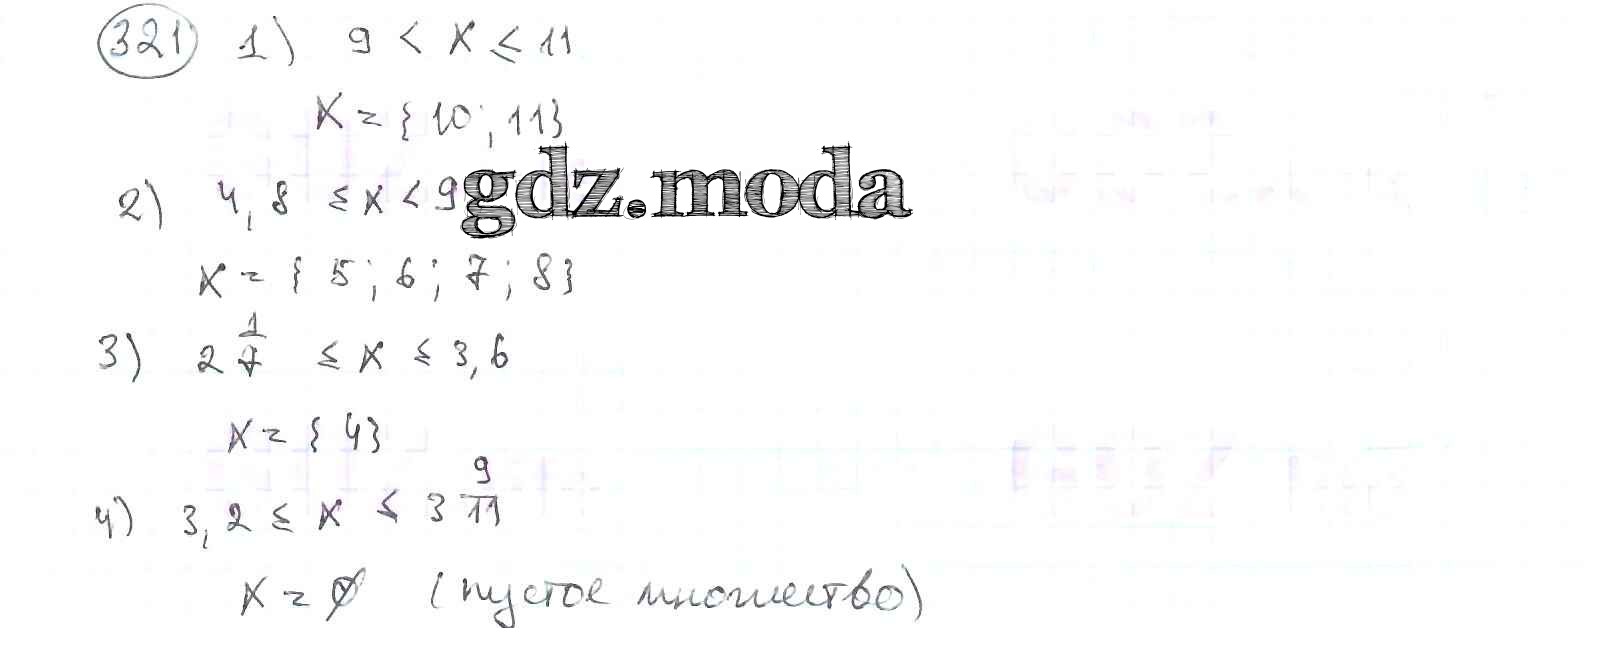 321 1) 9 < x ≤ 11
x = {10; 11}
2) 4,8 ≤ x < 9
gdz.moda
x = { 5; 6; 7; 8}
3) 2 1/7 ≤ x ≤ 3,6
x = { 4}
4) 3,2 ≤ x ≤ 3 9/11
x = ∅ (пустое множество)